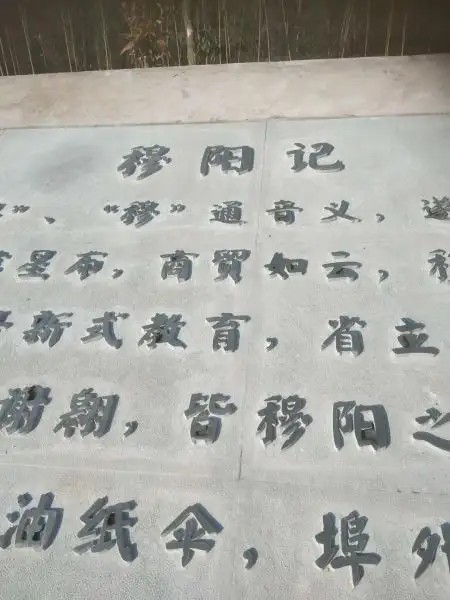 穆阳记
”、“穆”通音义，遂
星布，商贸如云，穆
新式教育，省立
谢翱，皆穆阳之
油纸伞，埠外